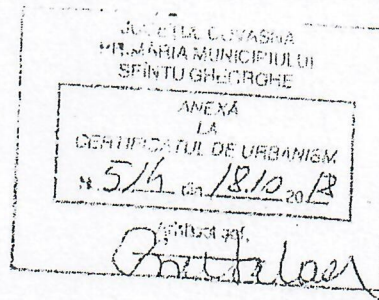 JUDEȚUL COVASNA
PRIMĂRIA MUNICIPIULUI
SFÎNTU GHEORGHE
ANEXĂ
LA
CERTIFICATUL DE URBANISM
din 18.10 2018
Arhitect șef,